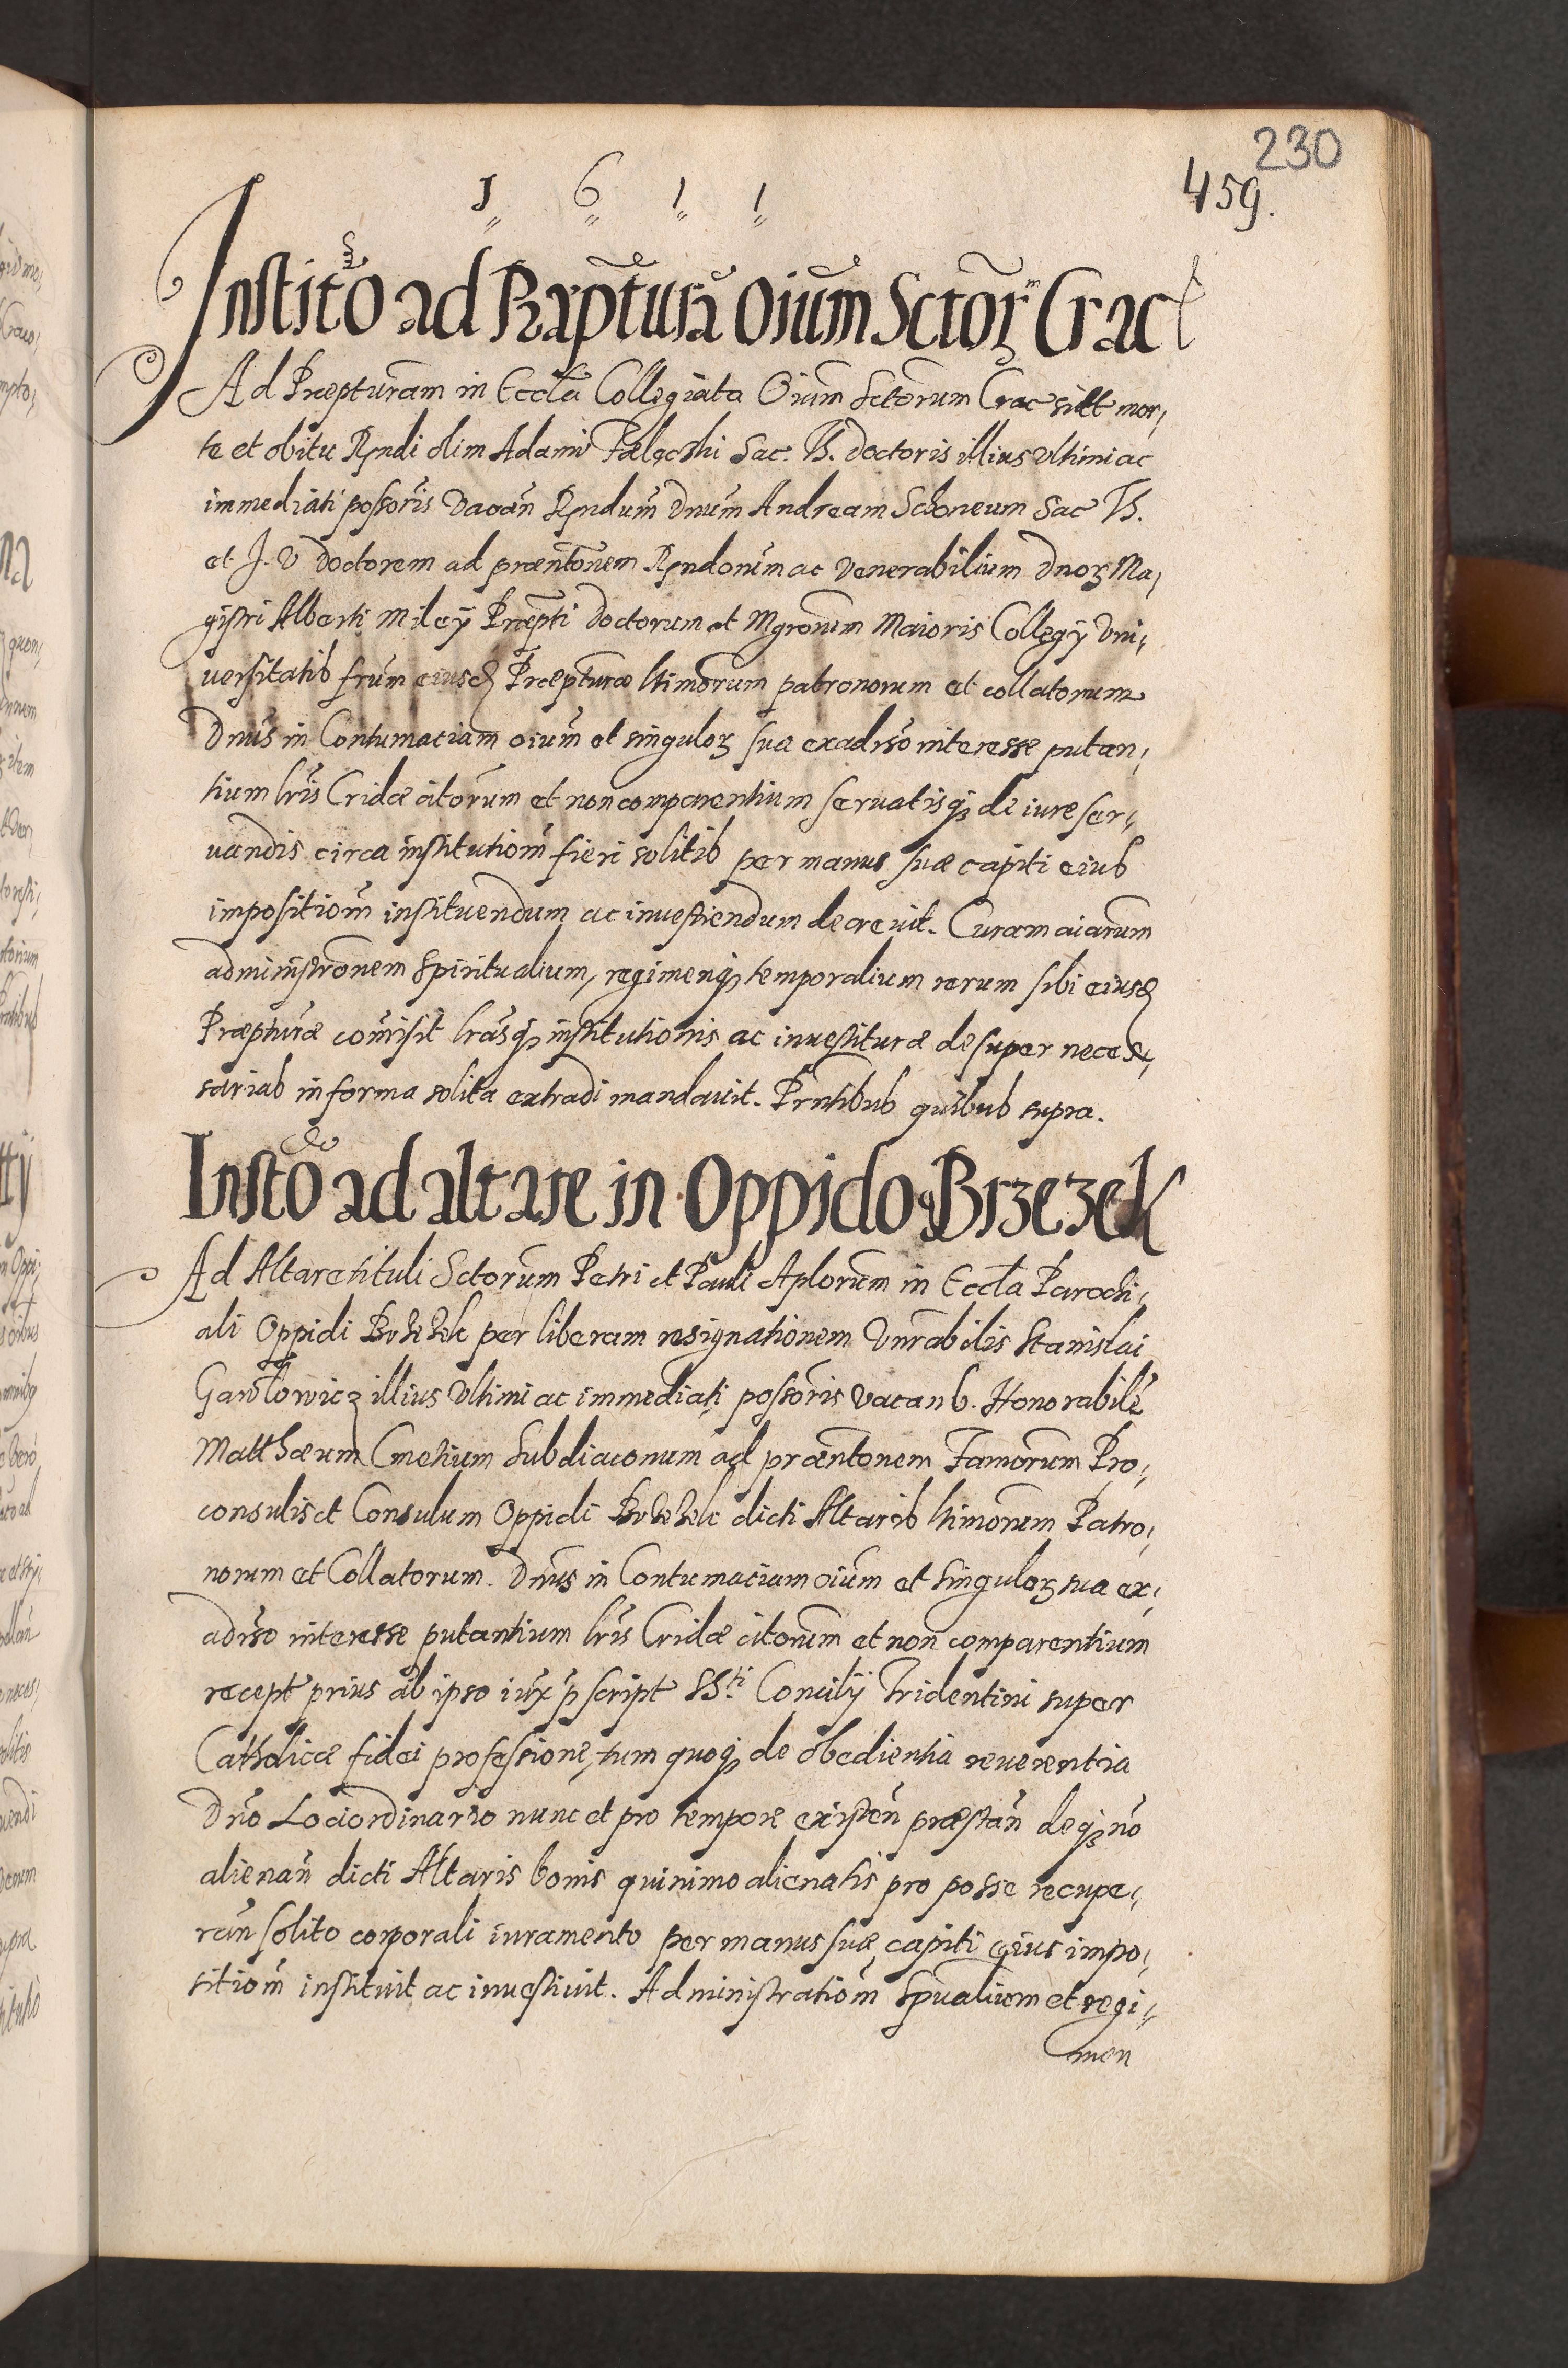 230
459.
1 6 1 1
Institō ad Præpturā Oiūm Sctōrꝫ Crac
Ad Præpturam in Eccl̃a Collegiata Oium Sctorum Crac sitt mor,
te et obitu Rn̄di olim Adami Falęcski Sac. Th. doctoris illius vltimi ac
immediati possōris vacān Rn̄dum Dnūm Andream Schoneum Sac Th.
et J. V doctorem ad præntōnem Rn̄dorum ac Venerabilium Dnorꝫ Ma,
gistri Alberti Miley Præpti doctorum et Mgrorum Maioris Collegÿ Vni,
uersitatis frūm eiusd Præpturæ ltimorum patronorum et collatorum
Dnūs in Contumaciam oium et singulorꝫ sua exadrso interesse putan,
tium lrīs Cridæ citorum et non comparentium seruatisqꝫ de iure ser,
uandis circa institutiom̄ fieri solitis per manus suæ capiti eius
impositiom̄ instituendum ac inuestiendum decreuit. Curam aiarum
administronem Spiritualium, regimenqꝫ temporalium rerum sibi eiusd
Præpturæ comīsit lrāsqꝫ institutionis ac inuestituræ desuper neces,
sarias in forma solita extradi mandauit. Prntibus quibus supra.
Instō ad altare in Oppido Brzezek
Ad Altare tituli Sctorum Petri et Pauli Aplorum in Eccl̃a Parochi,
ali Oppidi Brzezek per liberam resignationem Vnrabilis Stanislai
Gawłowicz illius vltimi ac immediati possoris vacan̄s. Honorabilē
Matthæum Cmetium Subdiaconum ad præntonem Famorum Pro,
consulis et Consulum Oppidi Brzezek dicti Altaris ltimorum Patro,
norum et Collatorum. Dnūs in Contumaciam oium et singulorꝫ sua ex,
adrso interesse putantium lrīs Cridæ citorum et non comparentium
recept prius ab ipso iux p̄script SS.ti Concilÿ Tridentini super
Catholicæ fidei professione, tum quoqꝫ de obedientia reuerentia
Dnō Lociordinario nunc et pro tempore existen̄ præstan̄ deqꝫ nō
alienan̄ dicti Altaris bonis quinimo alienatis pro posse recupe,
ran̄ solito corporali iuramento per manus suæ capiti eius impo,
sitiom̄ instituit ac inuestiuit. Administratiom̄ Spūalium et regi,
men